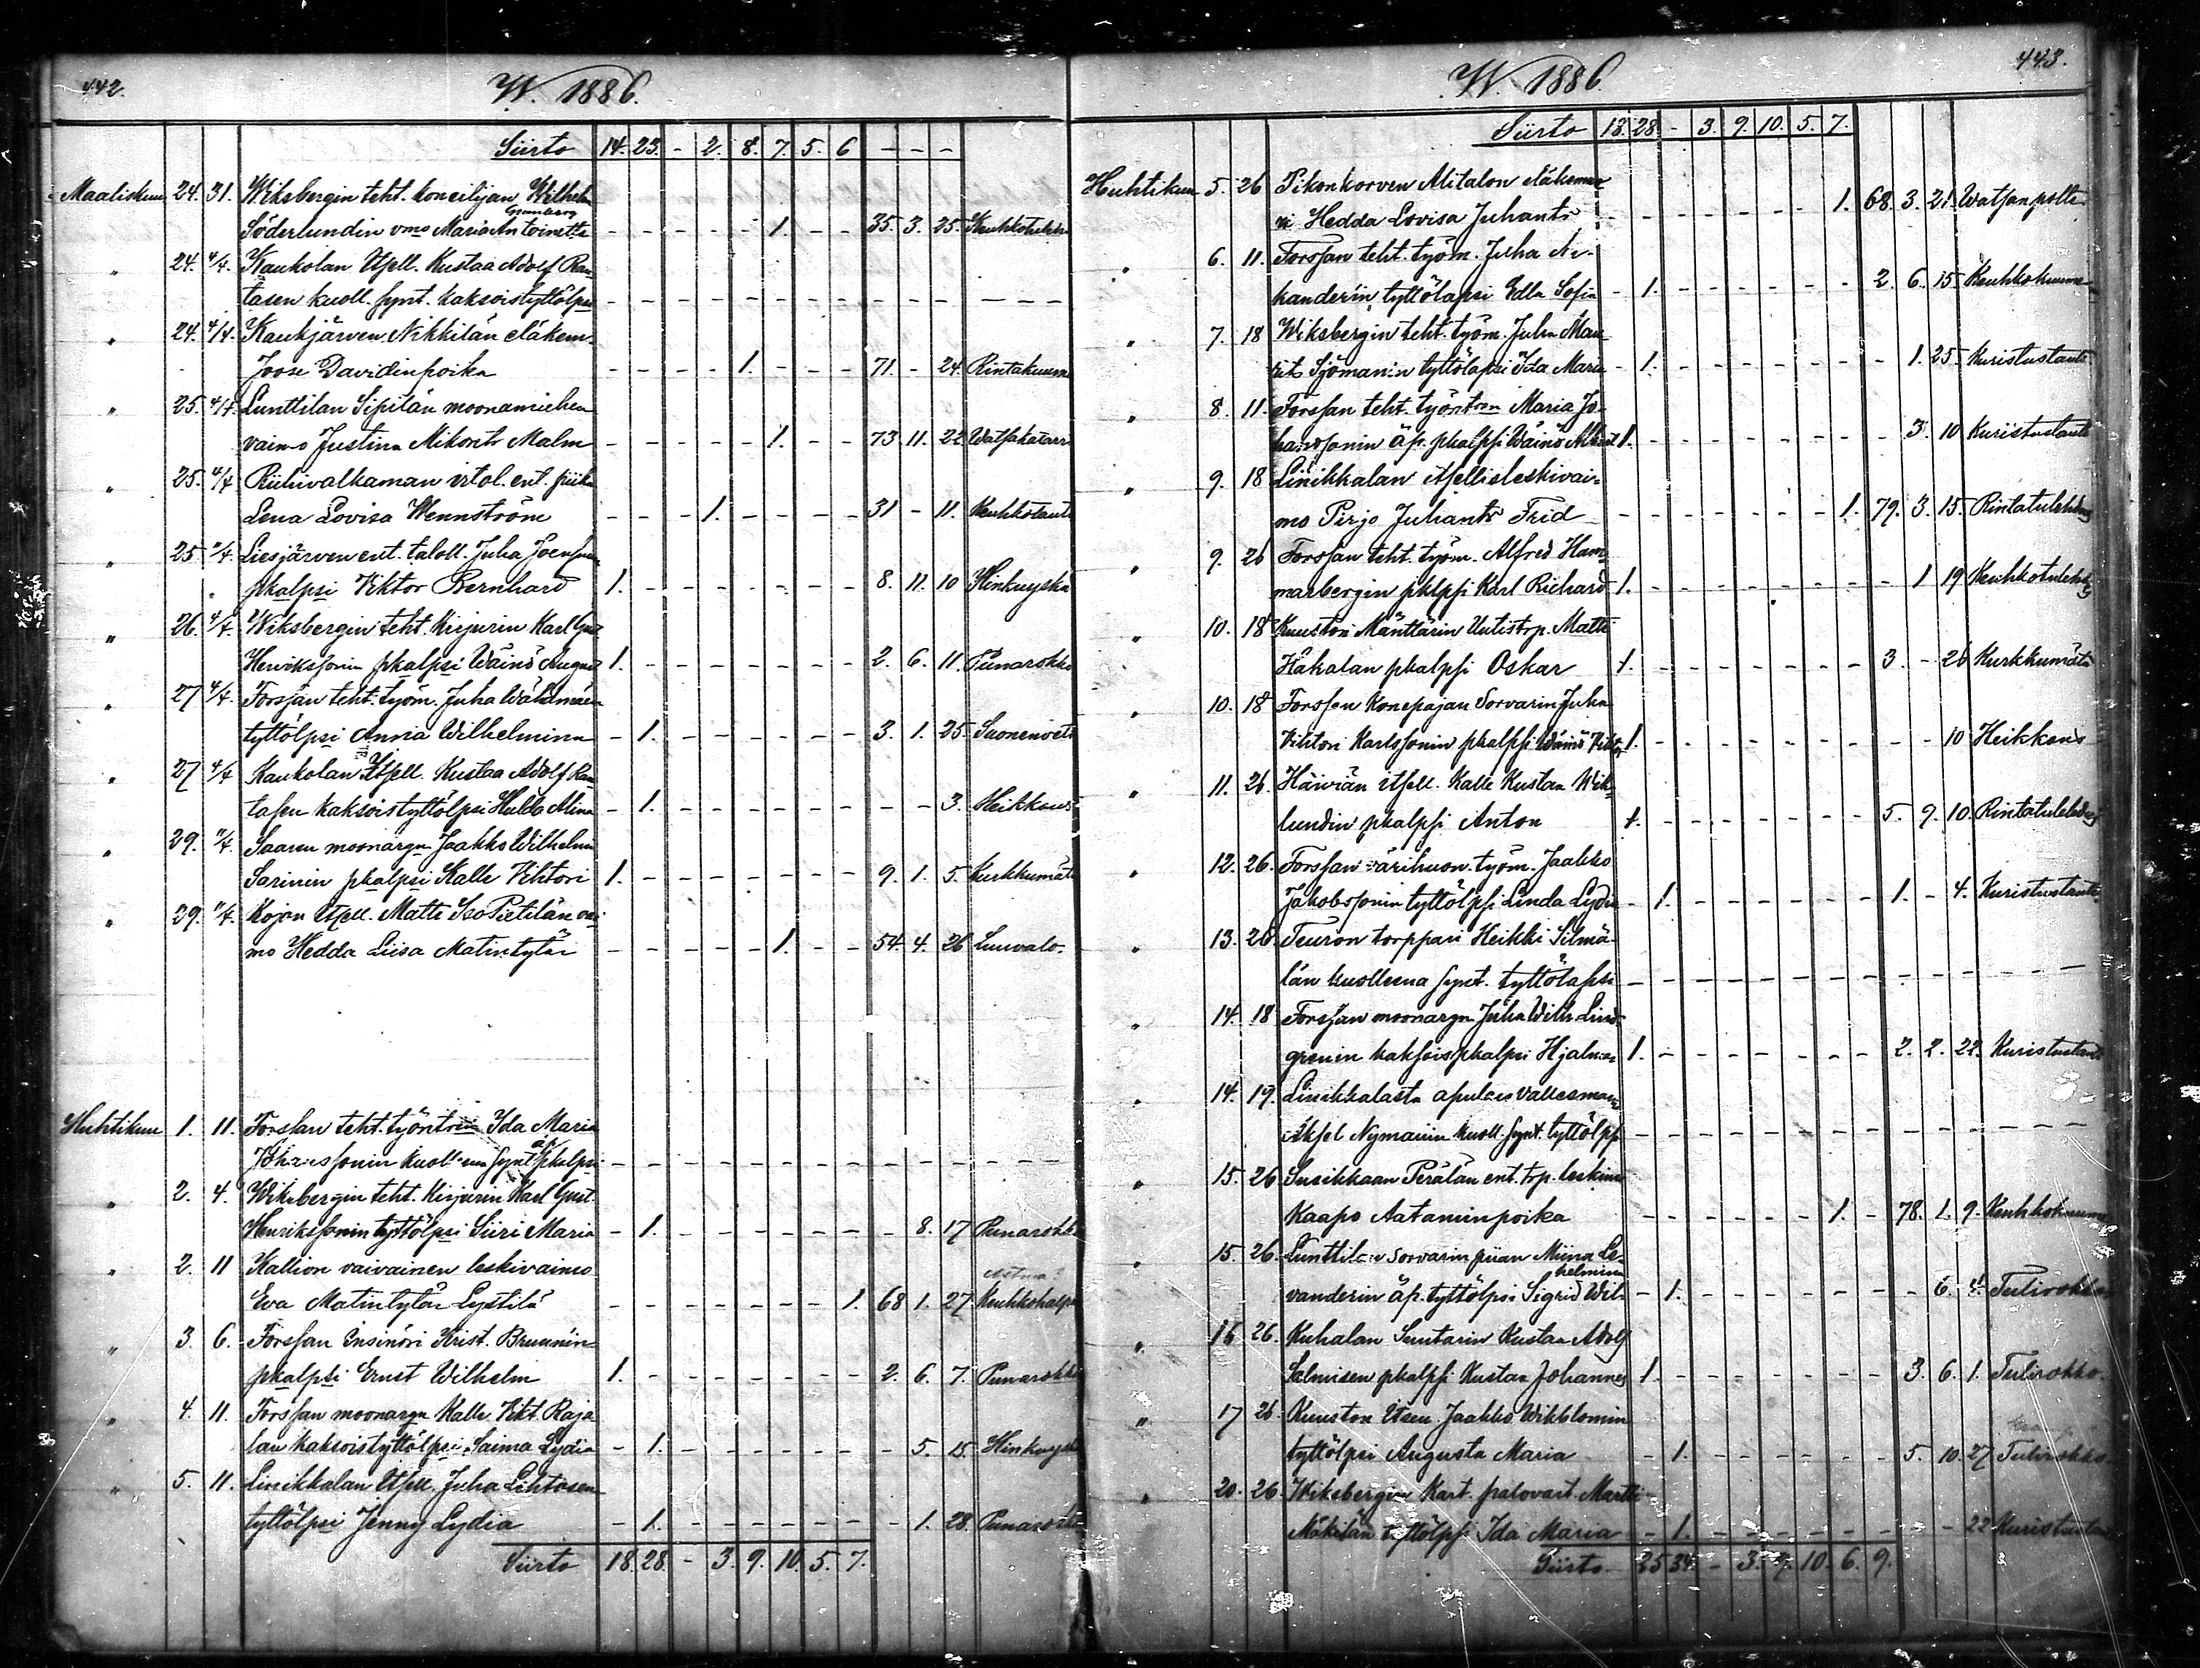 442.
W. 1886.
Siirto 14. 23. - 2. 8. 7. 5. 6 - - -
Maaliskuu 24. 31. Wiksbergin teht. koneilijan Wilhelm
Grumberg
Söderlundin vmo Maria Antoinetta - - - - - 1. - - 35. 3. 25.
" 24. 4/4. Kaukolan Itsell. Kustaa Adolf Ran
tasen kuoll. synt. kaksoistyttölpsi - - - - - - - - - - -
" 24. 4/4. Kaukjärven Nikkilän eläkem.
Joose Davidinpoika - - - - 1. - - - 71 - 24. Rintakuume
" 25. 4/4. Lunttilan Sipilän moonamiehen
vaimo Justina Mikonts Malm - - - - - 1. - - 73 11. 22 Watsakatarr
" 25. 4/4 Riihivalkaman itol. ent. piika
Lena Lovisa Wennström - - - 1. - - - - 31 - 11. Keuhkotauti
" 25 "/4. Liesjärven ent. taloll. Juha Joensuun
pkalpsi Viktor Bernhard 1. - - - - - - - 8. 11. 10 Hinkuyskä
" 26. 4/4. Wiksbergin teht. Kirjurin Karl Gust
Henrikssonin pkalpsi Wäinö August 1. - - - - - - - 2. 6. 11. Punarokko
" 27 4/4. Forssan teht. työm. Juha Wähämäen
tyttölpsi Anna Wilhelmina - 1. - - - - - - 3. 1. 25. Suonenveto
" 27 4/4 Kaukolan Itsell. Kustaa Adolf Ran
tasen kaksoistyttölpsi Hulda Alina - 1. - - - - - - - - 3. Heikkous
" 29. "/4. Saaren moonargn Jaakko Wilhelmin
Sarinin pkalpsi Kalle Viktori 1. - - - - - - - 9. 1. 5. Kurkkumätä
" 29. "/4. Kojon Itsell. Matti Iso Pietilän vai
mo Hedda Liisa Matintytär - - - - - 1. - - 54. 4. 26 Luuvalo.
Huhtikuu 1. 11. Forssan teht. työnträn Ida Maria
äp
Johanssonin kuolleena synt pkalpsi - - - - - - - - - - -
" 2. 4. Wiksbergin teht. Kirjurin Karl Gust.
Henrikssonin tyttölpsi Siiri Maria - 1. - - - - - - - 8. 17 Punarokko
" 2. 11 Kallion vaivainen leskivaimo
Eva Matintytär Lystilä - - - - - - - 1. 68 1. 27
" 3 6. Forssan Insinöri Krist. Brunnin
pkalpsi Ernst Wilhelm 1. - - - - - - - 2. 6. 7. Punarokko
" 4. 11. Forssan moonargn Kalle Vikt. Raja
lan kaksoistyttölpsi Saima Lydia - 1. - - - - - - - 5. 25. Hinkuyskä
" 5. 11. Linikkalan Itsell. Juha Lihtosen
tyttölpsi Jenny Lydia - 1. - - - - - - - 1. 28. Punarokko
Siirto 18. 28. - 3. 9. 10. 5. 7.
443.
W. 1886.
Siirto 18. 28. - 3. 9. 10. 5. 7.
Huhtikuu 5. 26 Pikonkorven Alitalon eläkeemän
ni Hedda Lovisa Juhants - - - - - - - 1. 68. 3. 21 Watsanpolte
" 6. 11. Forssan teht. työm. Juha Ni-
kanderin tyttölapsi Edla Sofia - 1. - - - - - - 2. 6. 15 Keuhkokuume
" 7. 18 Wiksbergin teht. työm. Juha Mau
rits Sjömanin tyttölapsi Ida Maria - 1. - - - - - - - 1. 25 Kuristustauti
" 8. 11. Forssan teht. työnträn Maria Jo-
hanssonin äp. pkalpsi Wäinö Albert 1. - - - - - - - - 3. 10 Kuristustauti
" 9. 18 Linikkalan itsellisleskivai-
mo Pirjo Juhants Frid - - - - - - - 1. 79. 3. 15. Rintatulehdus
" 9. 26 Forssan teht. työm. Alfred Ham-
marbergin pklpsi Karl Richard 1. - - - - - - - - 1 19 Keuhkotulehdus
" 10. 18 Kuuston Mänttärin Uutistrp. Matti
Häkälän pkalpsi Oskar 1. - - - - - - - 3. - 26 Kurkkumätä
" 10. 18 Forssan Konepajan Sorvarin Juha
Viktori Karlssonin pkalpsi Wäinö Viktor 1. - - - - - - - - - 10 Heikkous
" 11. 26. Häiviän itsell. Kalle Kustaa Wik
lundin pkalpsi Anton 1. - - - - - - - 5. 9. 10. Rintatulehdus
" 12. 26. Forssan värihuon. työm. Jaakko
Jakobssonin tyttölpsi Linda Lydia - 1. - - - - - - 1. - 4. Kuristustauti
" 13. 26. Teuron torppari Heikki Silmä-
län kuolleena synt. tyttölapsi - - - - - - - - - - -
" 14. 18 Forssan moonargn Juha Wilh. Lind-
grenin kaksoispkalpsi Hjalmar 1. - - - - - - - 2. 2. 22. Kuristustauti
" 14. 19. Linikkalasta apulais vallesmani
Aksel Nymanin kuoll. synt. tyttölpsi - - - - - - - - - - -
" 15. 26 Susikkaan Perälän ent. trp. leskim
Kaapo Aataminpoika - - - - - - 1. - 78. 1. 9. Keuhkokuume
" 15. 26. Lunttilan sorvarin piian Miina Le-
helmina
vanderin äp. tyttölpsi Sigrid Wil- - 1. - - - - - - - 6. 4. Tulirokko
" 16 26. Kuhalan Suutarin Kustaa Adolf
Salmisen pkalpsi Kustaa Johannes 1. - - - - - - - 3. 6. 1. Tulirokko.
" 17 26 Kuuston Itsen. Jaakko Wikblomin
tyttölpsi Augusta Maria - 1. - - - - - - 5. 10. 27 Tulirokko
" 20. 26. Wiksbergin Kart. palovart. Martti
Mäkilän tyttölpsi Ida Maria - 1. - - - - - - - - 22 Kuristustauti
Siirto 25 34. - 3. 9. 10. 6. 9.